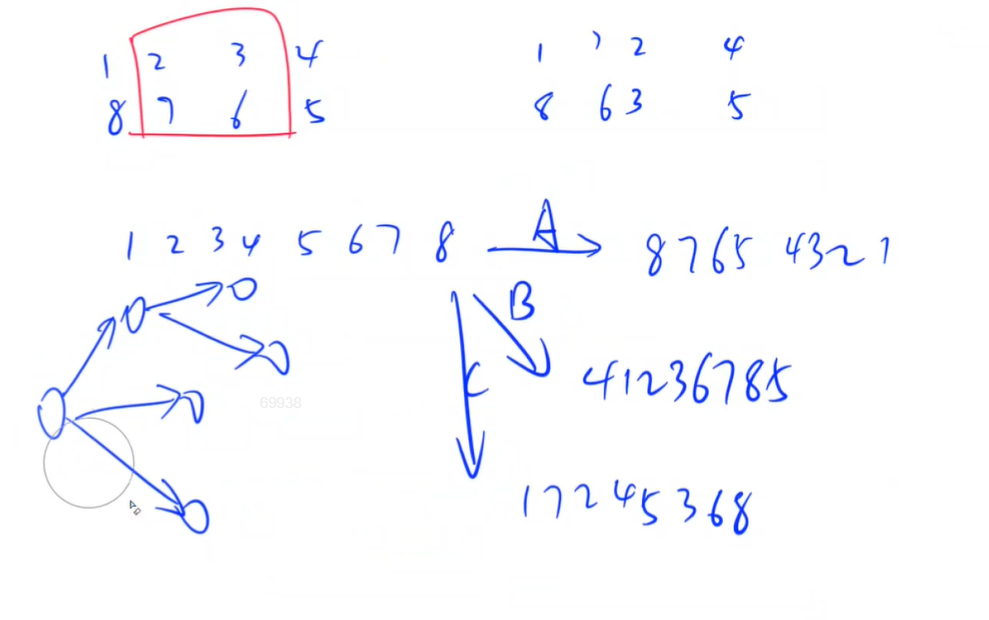 1 2 3 4
8 7 6 5
1 7 2 4
8 6 3 5
1 2 3 4 5 6 7 8 A 8 7 6 5 4 3 2 1
B
4 1 2 3 6 7 8 5
C
69938
1 7 2 4 5 3 6 8